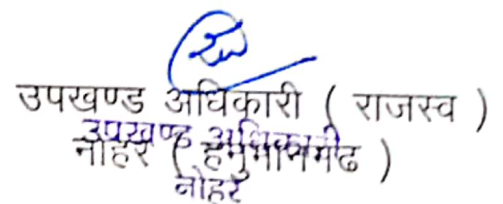 उपखण्ड अधिकारी ( राजस्व )
उपखण्ड अधिकारी
नोहर ( हनुमानगढ )
नोहर